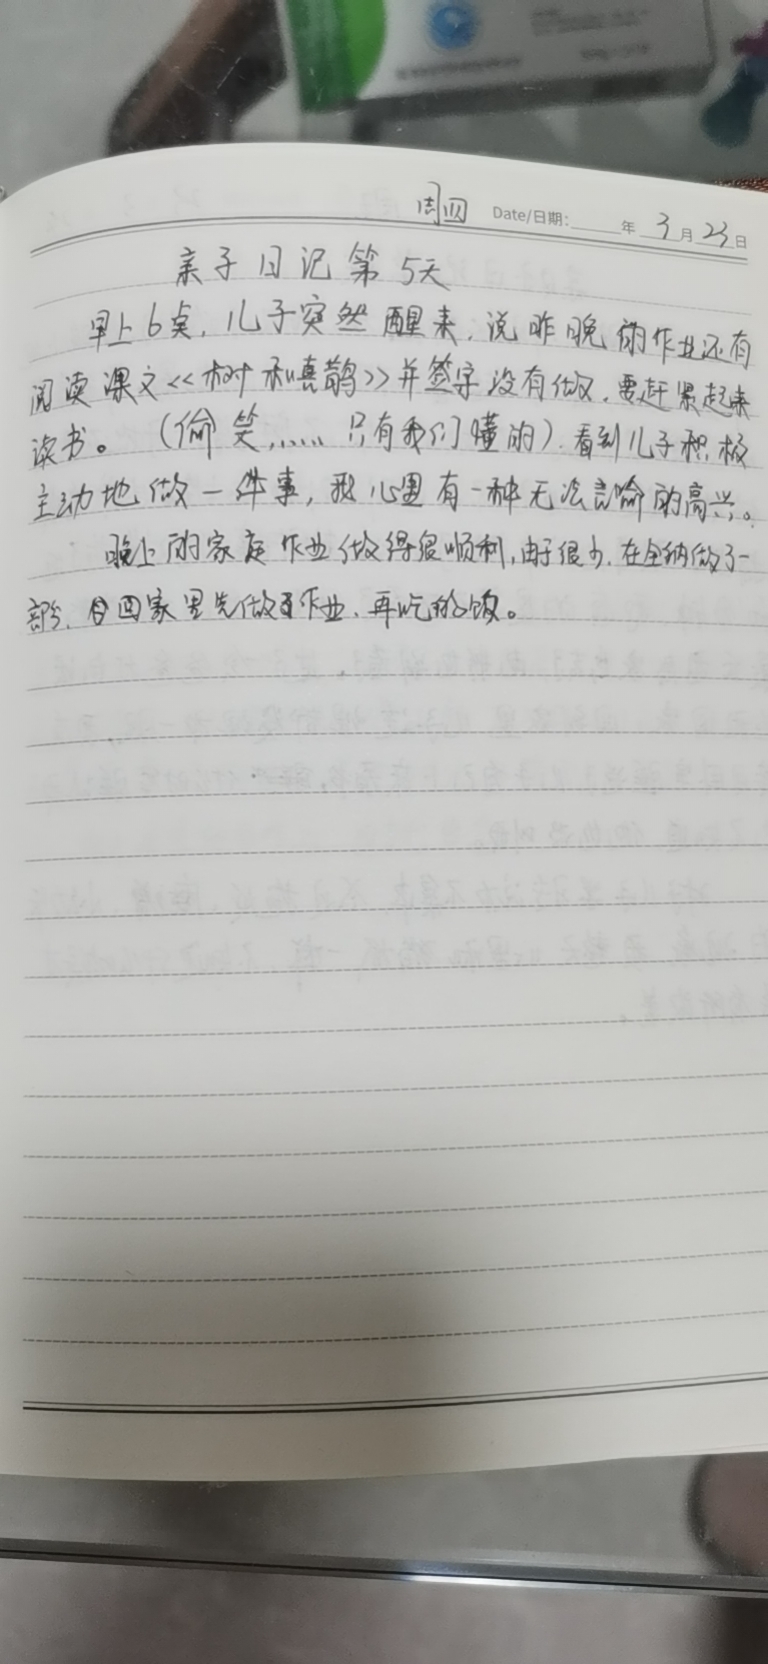 周四 Date/日期: 年 3 月 23 日
亲子日记第5天
早上6点，儿子突然醒来，说昨晚的作业还有
阅读课文<<树和喜鹊>>并签字没有做，要赶紧起来
读书。（偷笑......只有我们懂的）.看到儿子积极
主动地做一件事，我心里有一种无法言喻的高兴。
晚上的家庭作业做得很顺利，由于很少，在全纳做了一
部分，回家里先做了作业，再吃的饭。